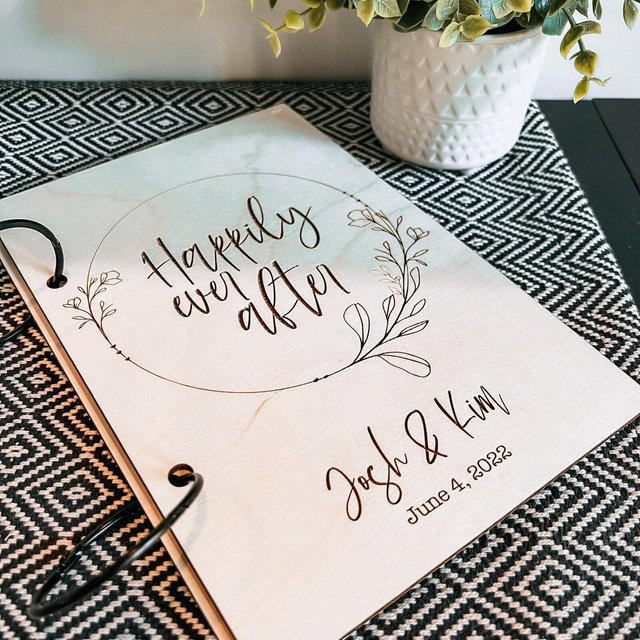 Happily
ever
after
Josh & Kim
June 4, 2022